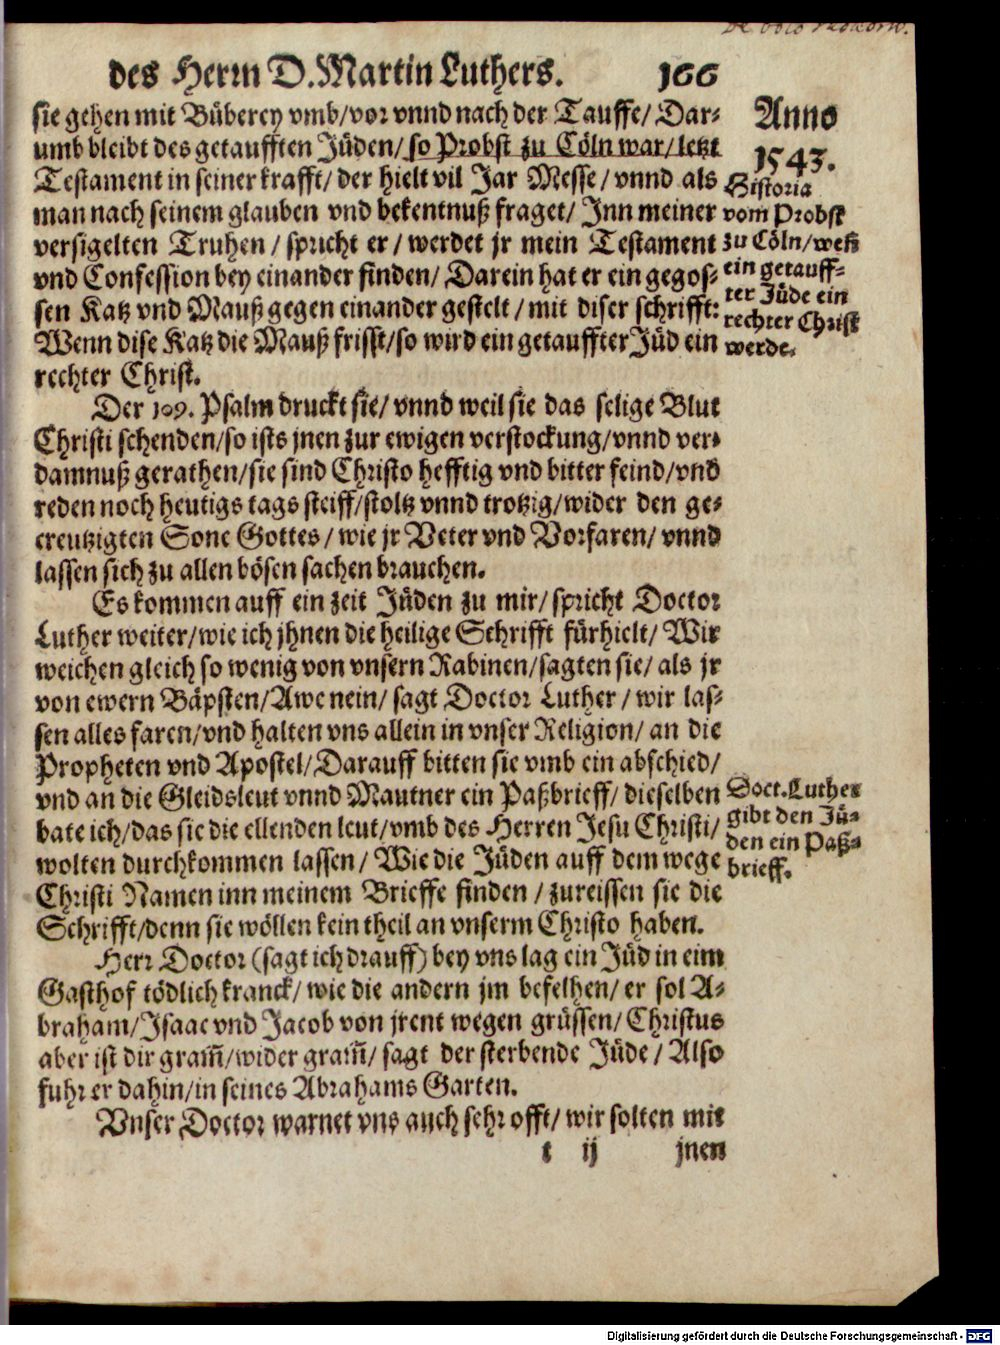 des Herrn D. Martin Luthers. 166
sie gehen mit Büberey vmb/vor vnnd nach der Tauffe/ Dar-
umb bleibt des getaufften Jüden/so Probst zu Cöln war/letzt
Testament in seiner krafft/ der hielt vil Jar Messe/ vnnd als
man nach seinem glauben vnd bekentnuß fraget/ Inn meiner
versigelten Truhen / spricht er / werdet jr mein Testament
vnd Confession bey einander finden/ Darein hat er ein gegos-
sen Katz vnd Mauß gegen einander gestelt / mit diser schrifft:
Wenn dise Katz die Mauß frisst/so wird ein getauffter Jüd ein
rechter Christ.
Anno
1543.
Historia
vom Probst
zu Cöln/weß
ein getauff-
ter Jüde ein
rechter Christ
werde.
Der 109. Psalm druckt sie/ vnnd weil sie das selige Blut
Christi schenden/so ists jnen zur ewigen verstockung/vnnd ver-
damnuß gerathen/sie sind Christo hefftig vnd bitter feind/vnd
reden noch heutigs tags steiff/stoltz vnnd trotzig/wider den ge-
creutzigten Sone Gottes / wie jr Veter vnd Vorfaren/ vnnd
lassen sich zu allen bösen sachen brauchen.
Es kommen auff ein zeit Jüden zu mir/ spricht Doctor
Luther weiter/wie ich jhnen die heilige Schrifft fürhielt/ Wir
weichen gleich so wenig von vnsern Rabinen/sagten sie/ als jr
von ewern Bäpsten/Awe nein/ sagt Doctor Luther / wir las-
sen alles faren/vnd halten vns allein in vnser Religion/ an die
Propheten vnd Apostel/Darauff bitten sie vmb ein abschied/
vnd an die Gleidsleut vnnd Mautner ein Paßbrieff/ dieselben
bate ich/das sie die ellenden leut/vmb des Herren Jesu Christi/
wolten durchkommen lassen / Wie die Jüden auff dem wege
Christi Namen inn meinem Brieffe finden / zureissen sie die
Schrifft/denn sie wöllen kein theil an vnserm Christo haben.
Doct. Luther
gibt den Jü-
den ein Paß-
brieff.
Herr Doctor (sagt ich drauff) bey vns lag ein Jüd in eim
Gasthof tödlich kranck/ wie die andern jm befelhen/ er sol A-
braham/Isaac vnd Jacob von jrent wegen grüssen/ Christus
aber ist dir gram̃/wider gram̃/ sagt der sterbende Jüde / Also
fuhr er dahin/in seines Abrahams Garten.
Vnser Doctor warnet vns auch sehr offt/ wir solten mit
t ij jnen
Digitalisierung gefördert durch die Deutsche Forschungsgemeinschaft - DFG